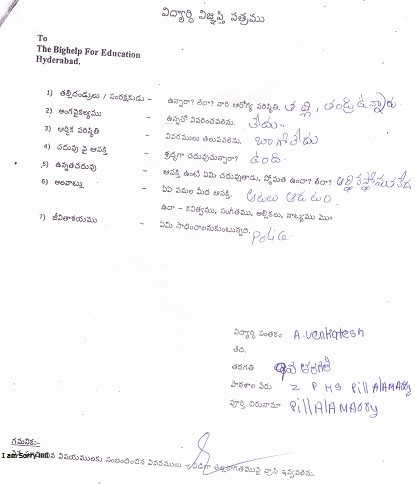 విద్యార్థి విజ్ఞప్తి పత్రము
To
The Bighelp For Education
Hyderabad.
1) తల్లిదండ్రులు / సంరక్షకుడు - ఉన్నారా? లేరా? వారి ఆరోగ్య పరిస్థితి. తల్లి, తండ్రి ఉన్నారు.
2) అంగవైకల్యము - ఉన్నచో వివరించవలెను. లేదు.
3) ఆర్థిక పరిస్థితి - వివరములు తెలుపవలెను. బాగోలేదు
4) చదువు పై ఆసక్తి - శ్రద్ధగా చదువుచున్నారా? ఉంది.
5) ఉన్నతచదువు - ఆసక్తి ఉంటే ఏమి చదువుతాడు, స్తోమత ఉందా? లేదా?
6) అలవాట్లు - ఏఏ పనుల మీద ఆసక్తి. ఆటలు ఆడటం.
ఉదా - కవిత్వము, సంగీతము, అల్లికలు, నాట్యము మొ
7) జీవితాశయము - ఏమి సాధించాలనుకుంటున్నది. Police.
విద్యార్థి సంతకం A.Venkatesh
తేది.
తరగతి తరగతి
పాఠశాల పేరు Z P HS PillAlAMArry
పూర్తి చిరునామా PillAlAMArry
గమనిక:-
I am Sorry విషయములకు సంబంధించిన వివరములు విడిగా తెల్లకాగితముపై వ్రాసి ఇవ్వవలెను.